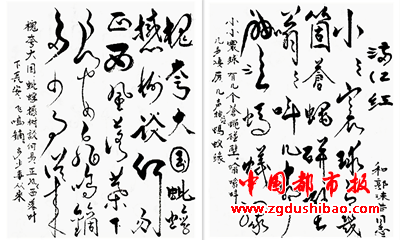 满江红
和郭沫若同志
小小寰球有
箇苍蝇碰壁
嗡嗡叫几声
蚂蚁缘
小小寰球有几个苍蝇碰壁嗡嗡叫
几声凄厉几声抽泣蚂蚁缘
槐夸大国蚍蜉
撼树谈何易
正西风落叶下
长安飞鸣镝
多少事从来
槐夸大国蚍蜉撼树谈何易正西风落叶
下长安飞鸣镝多少事从来
中国都市报
www.zgdushibao.com